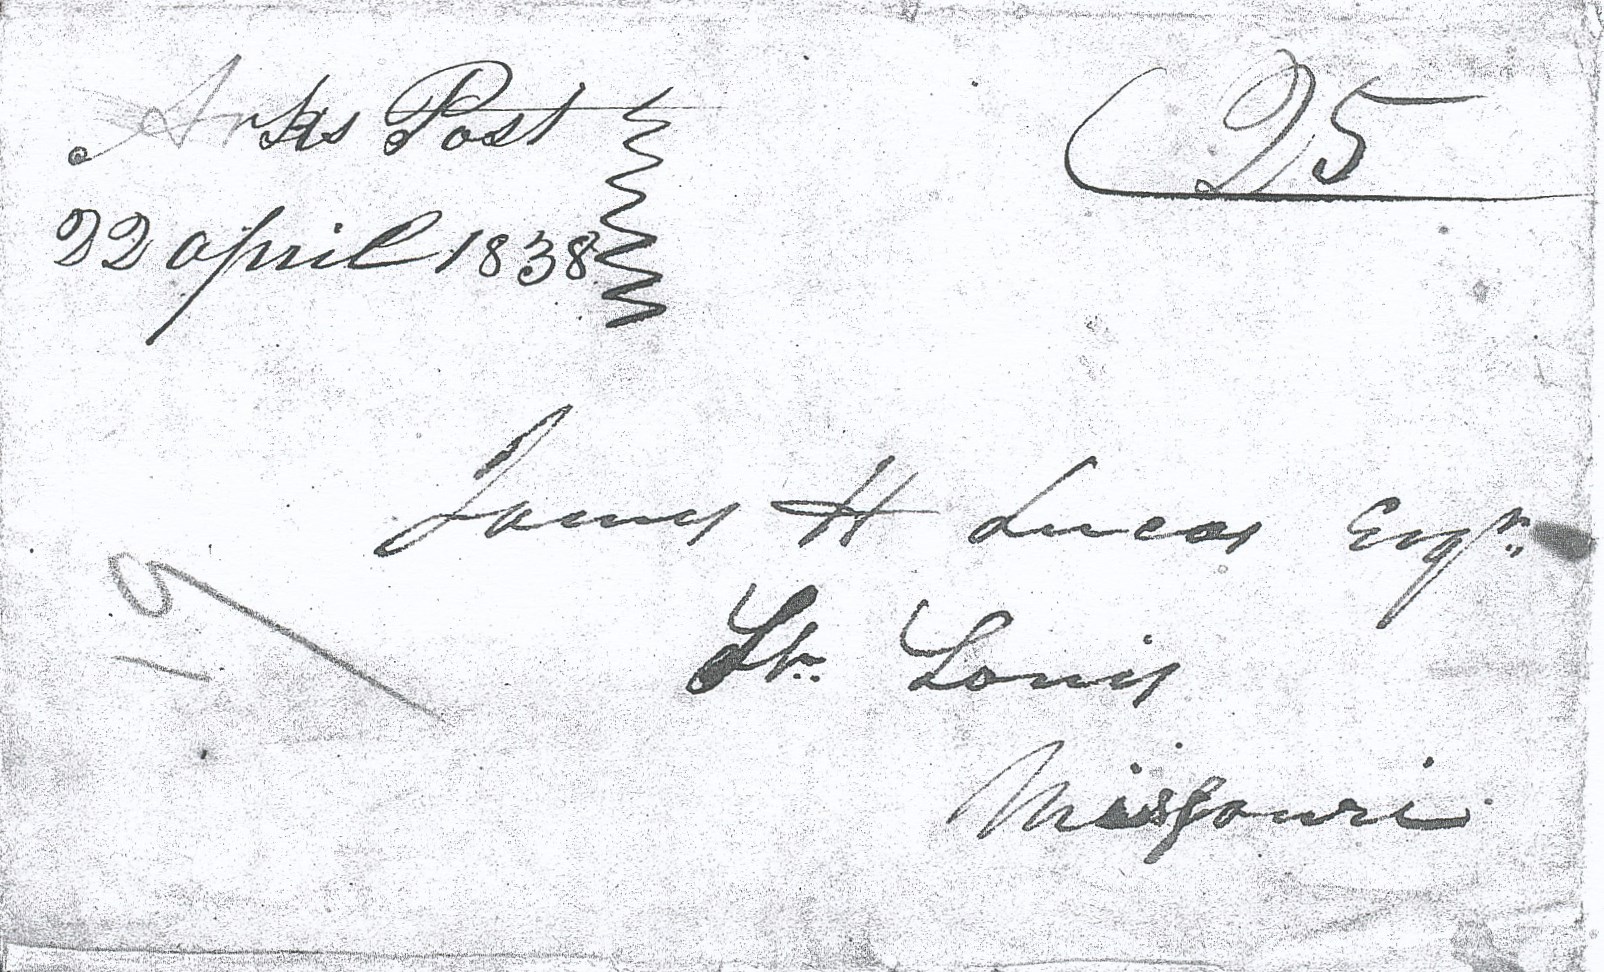 Arks Post
25
22 april 1838
James H Lucas Esqr.
St. Louis
Missouri